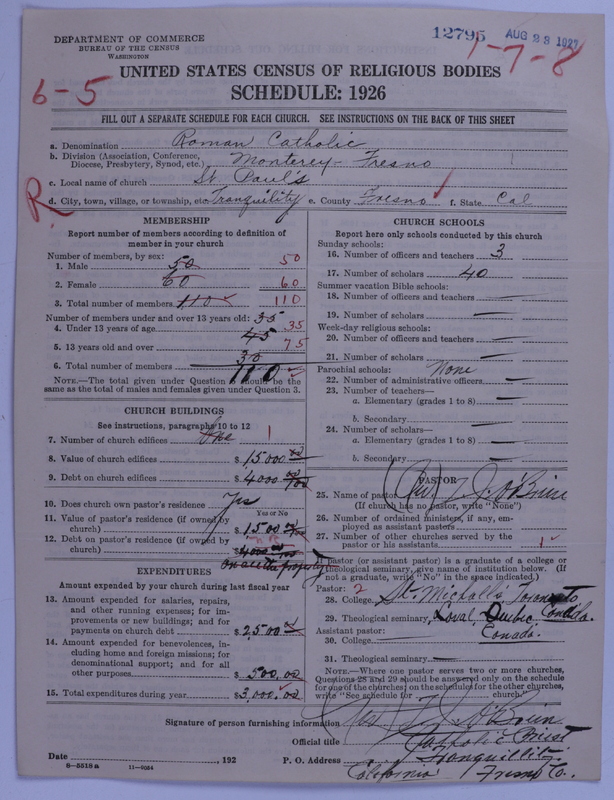 DEPARTMENT OF COMMERCE
BUREAU OF THE CENSUS
WASHINGTON
12795
AUG 23 1927
1-7-8
6-5
UNITED STATES CENSUS OF RELIGIOUS BODIES
SCHEDULE: 1926
FILL OUT A SEPARATE SCHEDULE FOR EACH CHURCH. SEE INSTRUCTIONS ON THE BACK OF THIS SHEET
a. Denomination Roman Catholic
b. Division (Association, Conference, Diocese, Presbytery, Synod, etc.) Monterey-Fresno
c. Local name of church St. Paul's
R
d. City, town, village, or township, etc. Tranquility e. County Fresno f. State Cal
MEMBERSHIP
Report number of members according to definition of
member in your church
Number of members, by sex:
1. Male 50 50
2. Female 60 60
3. Total number of members 110 110
Number of members under and over 13 years old:
4. Under 13 years of age 35 35
5. 13 years old and over 75
6. Total number of members 110
NOTE.—The total given under Question 6 should be the
same as the total of males and females given under Question 3.
CHURCH BUILDINGS
See instructions, paragraphs 10 to 12
7. Number of church edifices One 1
8. Value of church edifices $ 15000
9. Debt on church edifices $ 4000
10. Does church own pastor's residence Yes
Yes or No
11. Value of pastor's residence (if owned by
church) $ 1500
12. Debt on pastor's residence (if owned by
church) $ 4000
EXPENDITURES
Amount expended by your church during last fiscal year
13. Amount expended for salaries, repairs,
and other running expenses; for im-
provements or new buildings; and for
payments on church debt $ 2500
14. Amount expended for benevolences, in-
cluding home and foreign missions; for
denominational support; and for all
other purposes $ 500.00
15. Total expenditures during year $ 3,000.00
CHURCH SCHOOLS
Report here only schools conducted by this church
Sunday schools:
16. Number of officers and teachers 3
17. Number of scholars 40
Summer vacation Bible schools:
18. Number of officers and teachers
19. Number of scholars
Week-day religious schools:
20. Number of officers and teachers
21. Number of scholars
Parochial schools: None
22. Number of administrative officers
23. Number of teachers—
a. Elementary (grades 1 to 8)
b. Secondary
24. Number of scholars—
a. Elementary (grades 1 to 8)
b. Secondary
PASTOR
25. Name of pastor (Rev) J. O'Brien
(If church has no pastor, write "None")
26. Number of ordained ministers, if any, em-
ployed as assistant pastors
27. Number of other churches served by the
pastor or his assistants 1
If pastor (or assistant pastor) is a graduate of a college or
theological seminary, give name of institution below. (If
not a graduate, write "No" in the space indicated.)
Pastor: 2
28. College St. Michalls Toronto
29. Theological seminary Laval, Quebec, Canada.
Assistant pastor: Canada.
30. College
31. Theological seminary
NOTE.—Where one pastor serves two or more churches,
Questions 28 and 29 should be answered only on the schedule
for one of the churches; on the schedule for the other churches,
write "See schedule for church"
Signature of person furnishing information Rev J. O'Brien
Official title Catholic Priest
Date , 192
P. O. Address Tranquillity
California Fresno Co.
8—5518a 11—9054